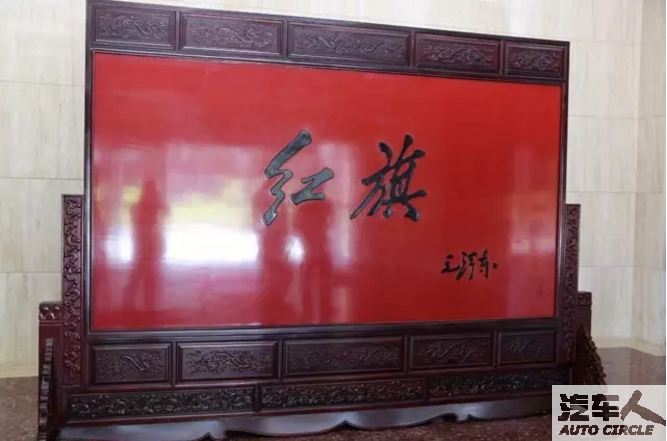 红旗
毛泽东
汽车人
AUTO CIRCLE